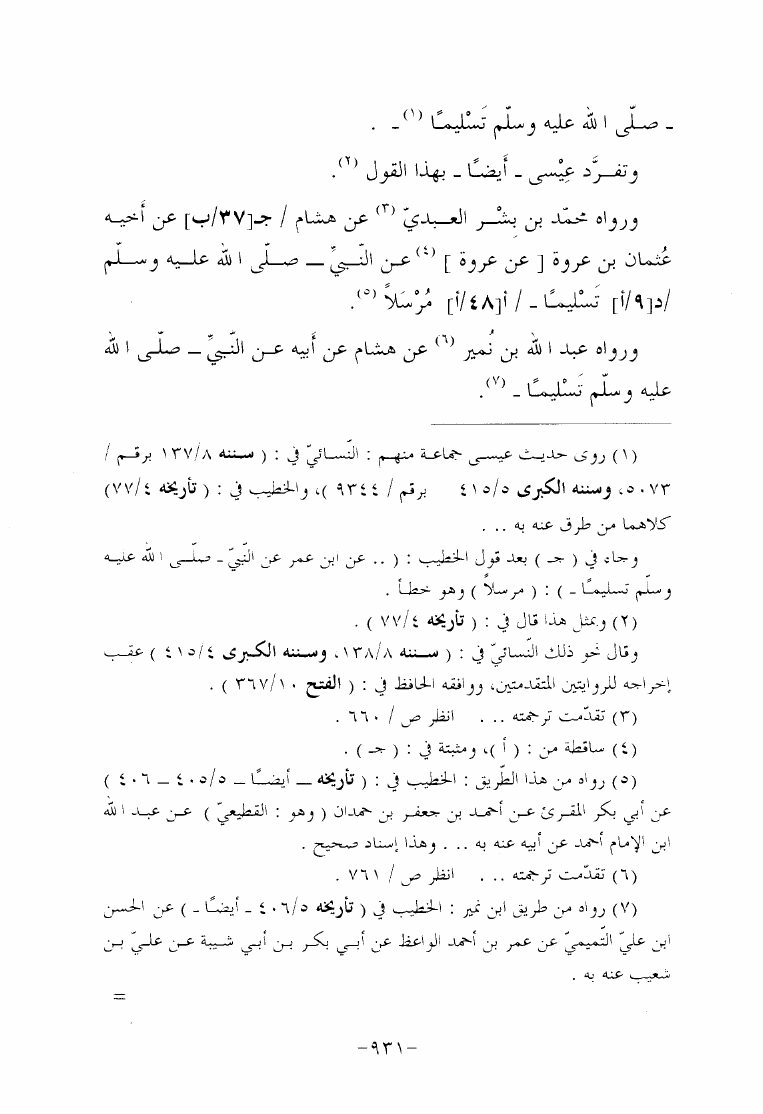 ـ صلَّى الله عليه وسلَّم تَسْليمًا (١) ـ .
وتفـرَّد عِيْسى ـ أَيضًا ـ بهذا القول (٢).
ورواه محمَّد بن بشْـر العـبديّ (٣) عن هشام / جـ[٣٧/ب] عن أَخيـه
عُثمان بن عروة [ عن عروة ] (٤) عـن النَّـبيِّ ـــ صلَّـى الله علـيه وسلَّـم
/د[٩/أ] تَسْليمًـا ـ / أ[٤٨/أ] مُرْسَلاً (٥).
ورواه عبد الله بن نُمير (٦) عن هشام عن أَبيه عـن النَّـبيِّ ـــ صلَّـى الله
عليه وسلَّم تَسْليمًا ـ (٧).
(١) روى حديث عيسى جماعة منهم : النَّسائيّ في : ( سـننه ١٣٧/٨ برقـم /
٥٠٧٣، وسننه الكبرى ٤١٥/٥ برقم / ٩٣٤٤ )، والخطيب في : ( تأريخه ٧٧/٤)
كلاهما من طرق عنه به . . .
وجاء في ( جـ ) بعد قول الخطيب : ( .. عن ابن عمر عن النَّبيّ ـ صلَّـى الله عليـه
وسلَّم تسليمًـا ـ ) : ( مرسلاً ) وهو خطأ .
(٢) وبمثل هذا قال في : ( تأريخه ٧٧/٤ ) .
وقال نحو ذلك النَّسائيّ في : ( سـننه ١٣٨/٨، وسننه الكبرى ٤١٥/٤ ) عقـب
إخراجه للروايتين المتقدمتين، ووافقه الحافظ في : ( الفتح ٣٦٧/١٠ ) .
(٣) تقدَّمت ترجمته . . . انظر ص / ٦٦٠ .
(٤) ساقطة من : ( أ )، ومثبتة في : ( جـ ) .
(٥) رواه من هذا الطَّريق : الخطيب في : ( تأريخه ـــ أيضًـا ـــ ٤٠٥/٥ ـــ ٤٠٦ )
عن أبي بكر المقـرئ عـن أحمـد بن جعفـر بن حمدان ( وهو : القطيعيّ ) عـن عبـد الله
ابن الإمام أحمد عن أبيه عنه به . . . وهذا إسناد صحيح .
(٦) تقدَّمت ترجمته . . . انظر ص / ٧٦١ .
(٧) ورواه من طريق ابن نمير : الخطيب في ( تأريخه ٤٠٦/٥ ـ أيضًـا ـ ) عن الحسن
ابن عليّ التَّميميّ عن عمر بن أحمد الواعظ عن أبـي بكـر بـن أبـي شـيبة عـن علـيّ بـن
شعيب عنه به .
=
-٩٣١-